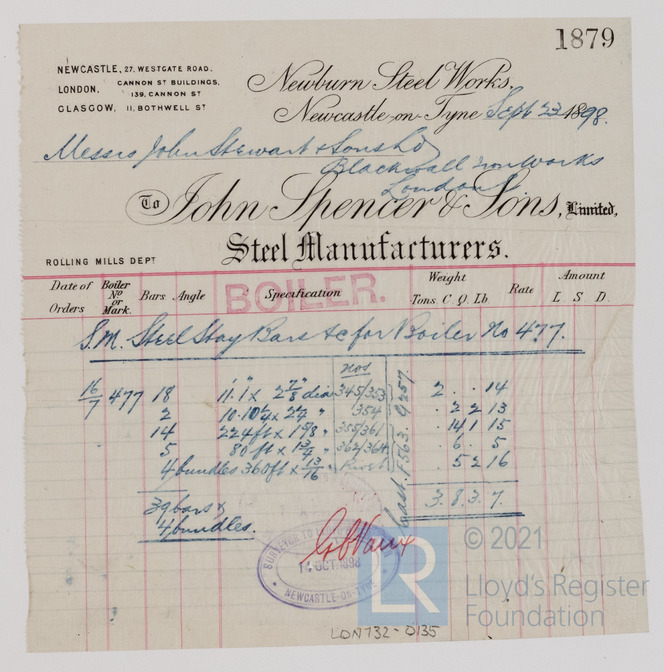 1879
NEWCASTLE, 27. WESTGATE ROAD.
LONDON, CANNON ST BUILDINGS, 139, CANNON ST
GLASGOW, 11, BOTHWELL ST
Newburn Steel Works,
Newcastle-on-Tyne Sept 23 1898.
Messrs John Stewart & Sons Ld
Blackwall Ironworks
London
To John Spencer & Sons, Limited,
Steel Manufacturers.
ROLLING MILLS DEPT
Date of Orders Boiler No or Mark. Bars Angle Specification Weight Tons. C. Q. Lb Rate Amount L. S. D.
BOILER.
S.M. Steel Stay Bars &c for Boiler No 477.
nos
16/7 477 18 11'.1" x 2 7/8" dia 345/353 2 . . 14
2 354 . 2 2 13
14 224 ft x 355/361 . 14 1 15
5 80 ft x 1 3/4 " 362/364 . 6 . 5
4 bundles 360 ft x 13/16 " Rivet . 5 2 16
Cast. F563. G257.
39 bars & 3. 8. 3. 7.
4 bundles.
SURVEYOR TO
14 OCT 1898
NEWCASTLE-ON-TYNE
LR
© 2021
Lloyd's Register
Foundation
LON732-0135